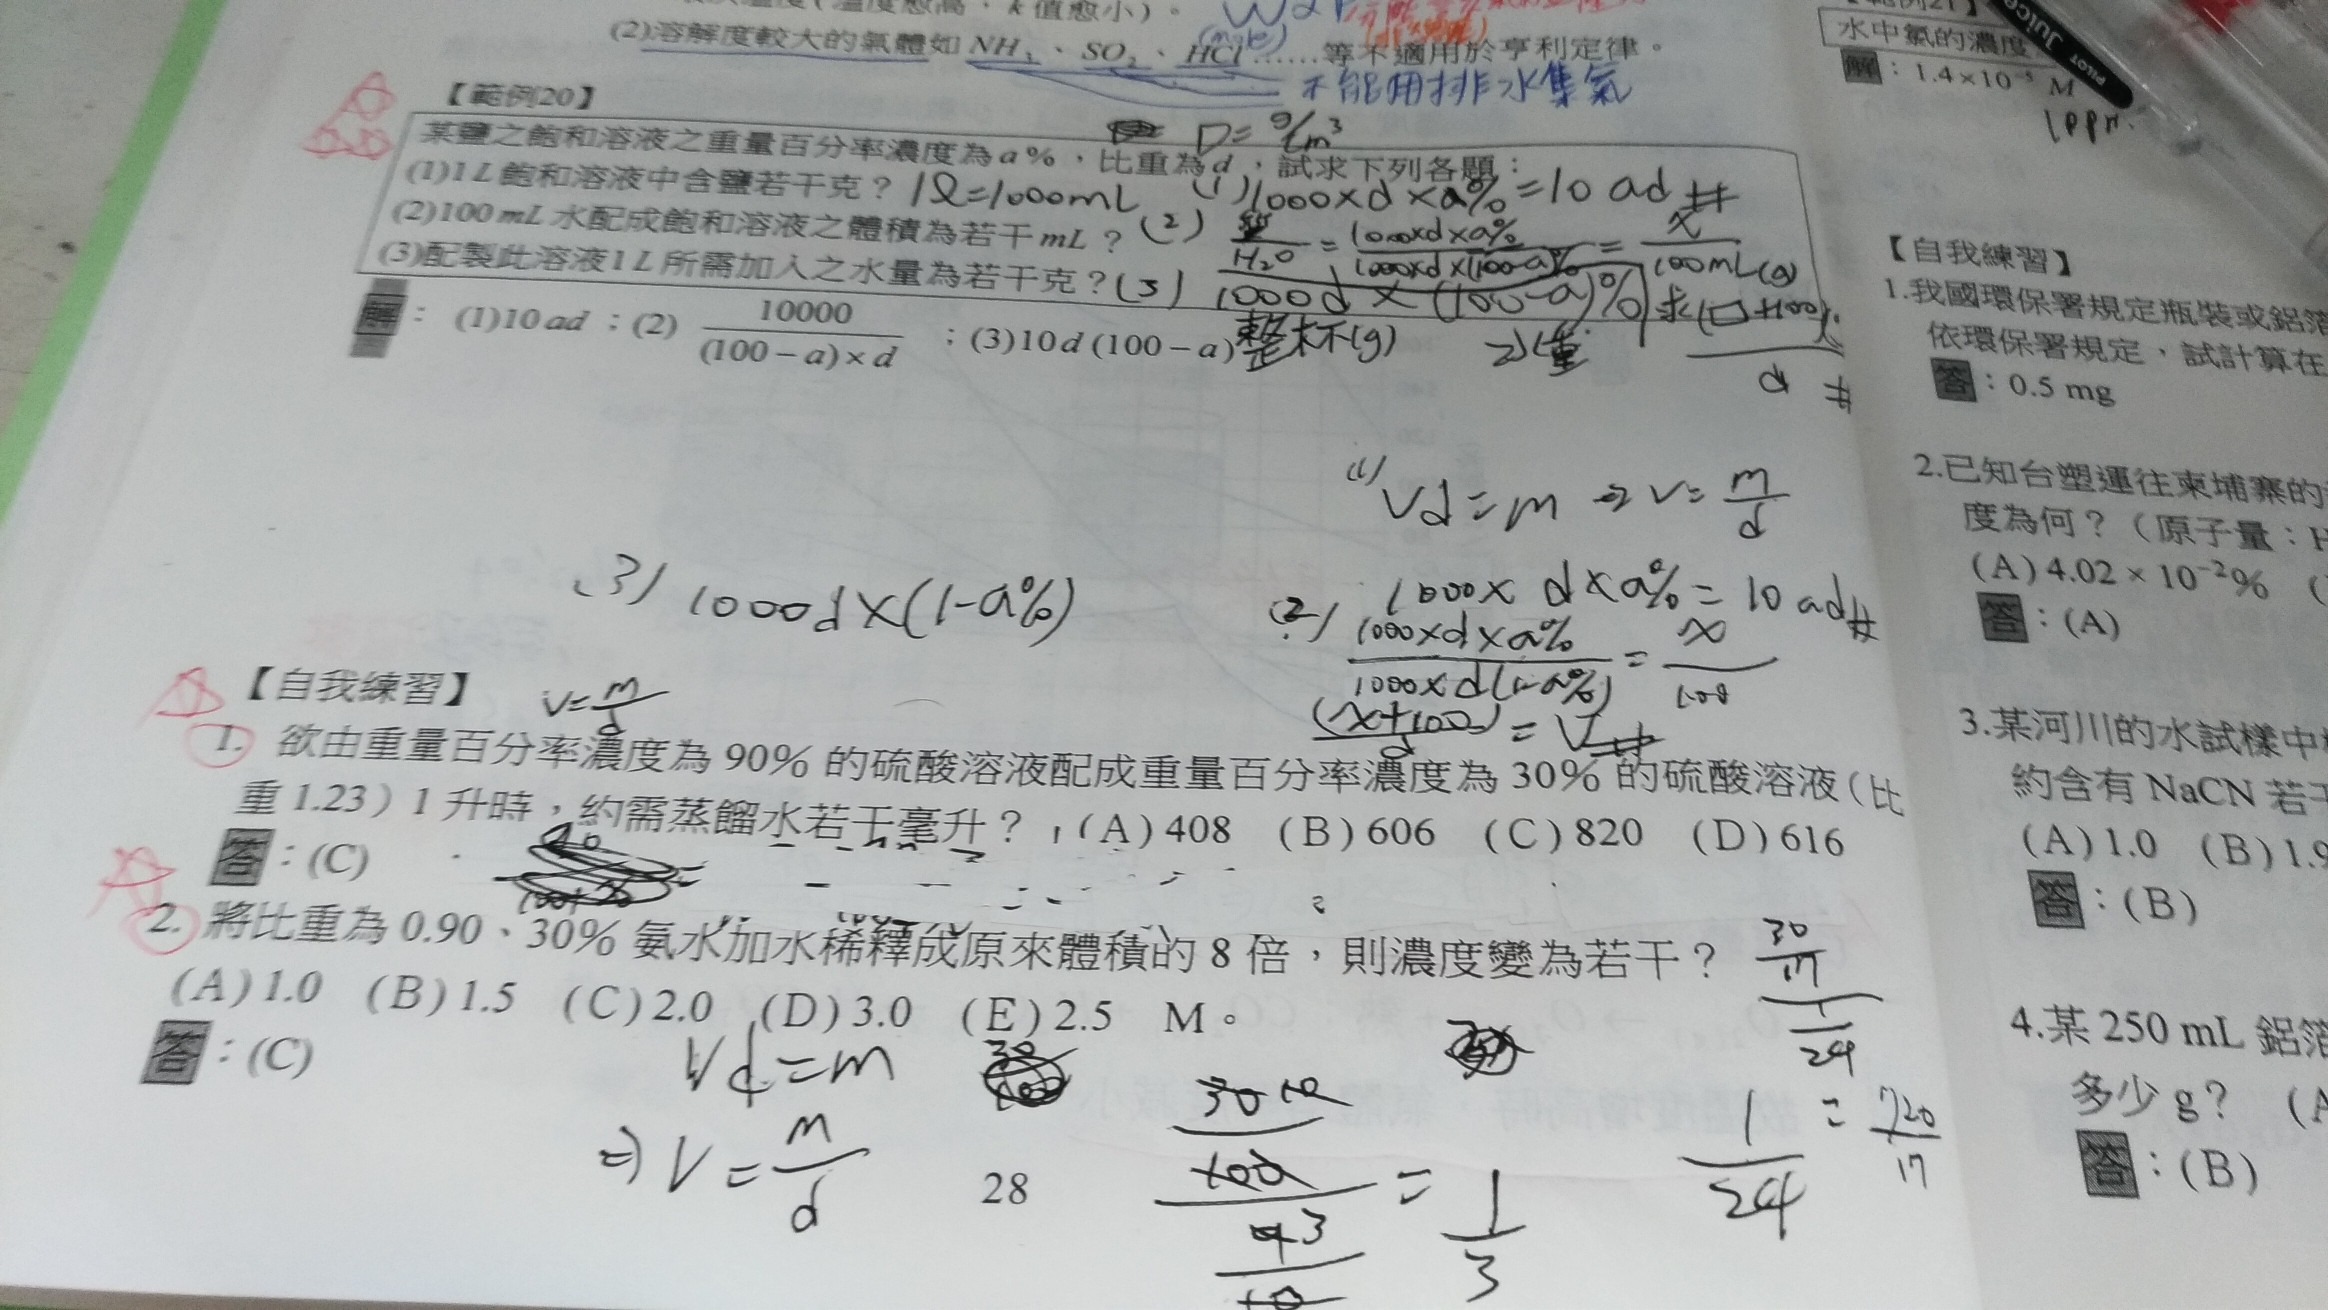 值愈小）。
(2)溶解度較大的氣體如 NH₃、SO₂、HCl……等不適用於亨利定律。
不能用排水集氣
【範例20】
D= g/cm³
某鹽之飽和溶液之重量百分率濃度為 a%，比重為 d，試求下列各題：
(1)1L 飽和溶液中含鹽若干克？ 1ℓ=1000mL (1) 1000×d×a%=10ad #
(2)100mL 水配成飽和溶液之體積為若干mL？ (2) 鹽/H₂O = 1000×d×a% / 1000×d×(100-a)% = x / 100mL(g)
(3)配製此溶液1L所需加入之水量為若干克？ (3) 1000d×(100-a)% 求(□+100)
解：(1)10ad；(2) 10000/(100－a)×d；(3)10d(100－a) 整杯(g) 水重 / d #
(1) Vd=m ⇒ V=m/d
1000×d×a%=10ad #
(3) 1000d×(1-a%)
(2) 1000×d×a% / 1000×d(1-a%) = x / 100
(x+100)/d = V #
【自我練習】 V=m/d
1. 欲由重量百分率濃度為 90% 的硫酸溶液配成重量百分率濃度為 30% 的硫酸溶液（比
重 1.23）1 升時，約需蒸餾水若干毫升？ (A)408 (B)606 (C)820 (D)616
答：(C)
2. 將比重為 0.90、30% 氨水加水稀釋成原來體積的 8 倍，則濃度變為若干？
(A)1.0 (B)1.5 (C)2.0 (D)3.0 (E)2.5 M。
答：(C)
Vd=m
⇒ V=m/d
= 1/3
30/17
1/24
1/24 = 720/17
28
水中氧的濃度
解：1.4×10⁻⁵ M
1ppm
PILOT Juice
【自我練習】
1.我國環保署規定瓶裝或鋁箔
依環保署規定，試計算在
答：0.5 mg
2.已知台塑運往柬埔寨的
度為何？（原子量：H
(A)4.02×10⁻²%
答：(A)
3.某河川的水試樣中
約含有 NaCN 若干
(A)1.0 (B)1.9
答：(B)
4.某 250 mL 鋁箔
多少 g？ (A
答：(B)